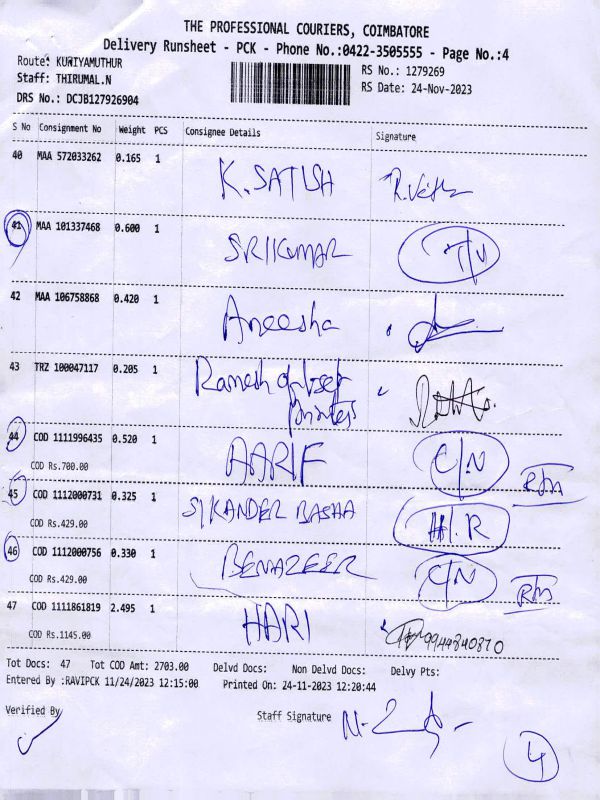 THE PROFESSIONAL COURIERS, COIMBATORE
Delivery Runsheet - PCK - Phone No.:0422-3505555 - Page No.:4
Route: KUNIYAMUTHUR RS No.: 1279269
Staff: THIRUMAL.N RS Date: 24-Nov-2023
DRS No.: DCJB127926904
S No Consignment No Weight PCS Consignee Details Signature
40 MAA 572033262 0.165 1 K.SATISH
41 MAA 101337468 0.600 1 SRIKUMAR
42 MAA 106758868 0.420 1 Aneesha
43 TRZ 100047117 0.205 1 Ramesh offset
printers
44 COD 1111996435 0.520 1 AARIF C/N
COD Rs.700.00
45 COD 1112000731 0.325 1 SIKANDER BASHA H.R
COD Rs.429.00
46 COD 1112000756 0.330 1 BENAZEER C/N
COD Rs.429.00
47 COD 1111861819 2.495 1 HARI 9944840870
COD Rs.1145.00
Tot Docs: 47 Tot COD Amt: 2703.00 Delvd Docs: Non Delvd Docs: Delvy Pts:
Entered By :RAVIPCK 11/24/2023 12:15:00 Printed On: 24-11-2023 12:20:44
Verified By Staff Signature
4